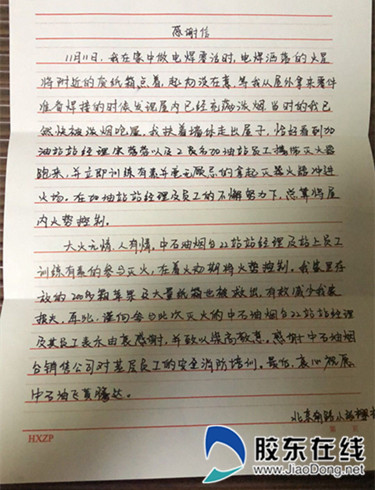 感谢信
11月11日，我在家中做电焊零活时，电焊洒落的火星
将附近的废纸箱点着，起初没在意，等我从屋外拿来零件
准备焊接的时候发现屋内已经充满浓烟，当时的我已
然快被浓烟呛晕，我扶着墙体走出屋子，恰好看到加
油站站经理 以及2名加油站员工携带灭火器
跑来，并立即训练有素并毫无顾忌的拿起灭火器冲进
火场。在加油站站经理及员工的不懈努力下，总算将屋
内火势控制。
大火无情，人有情，中石油烟台22站站经理及站上员工
训练有素的参与灭火，在着火初期将火势控制。我家里存
放的200多箱苹果及大量纸箱也被救出，有效减少我家
损失，再此，谨向参与此次灭火的中石油烟台22站站经理
及其员工表示由衷感谢，并致以崇高敬意，感谢中石油烟
台销售公司对基层员工的安全消防培训。最后，衷心祝愿
中石油飞黄腾达。
HXZP
胶东在线
www.JiaoDong.net